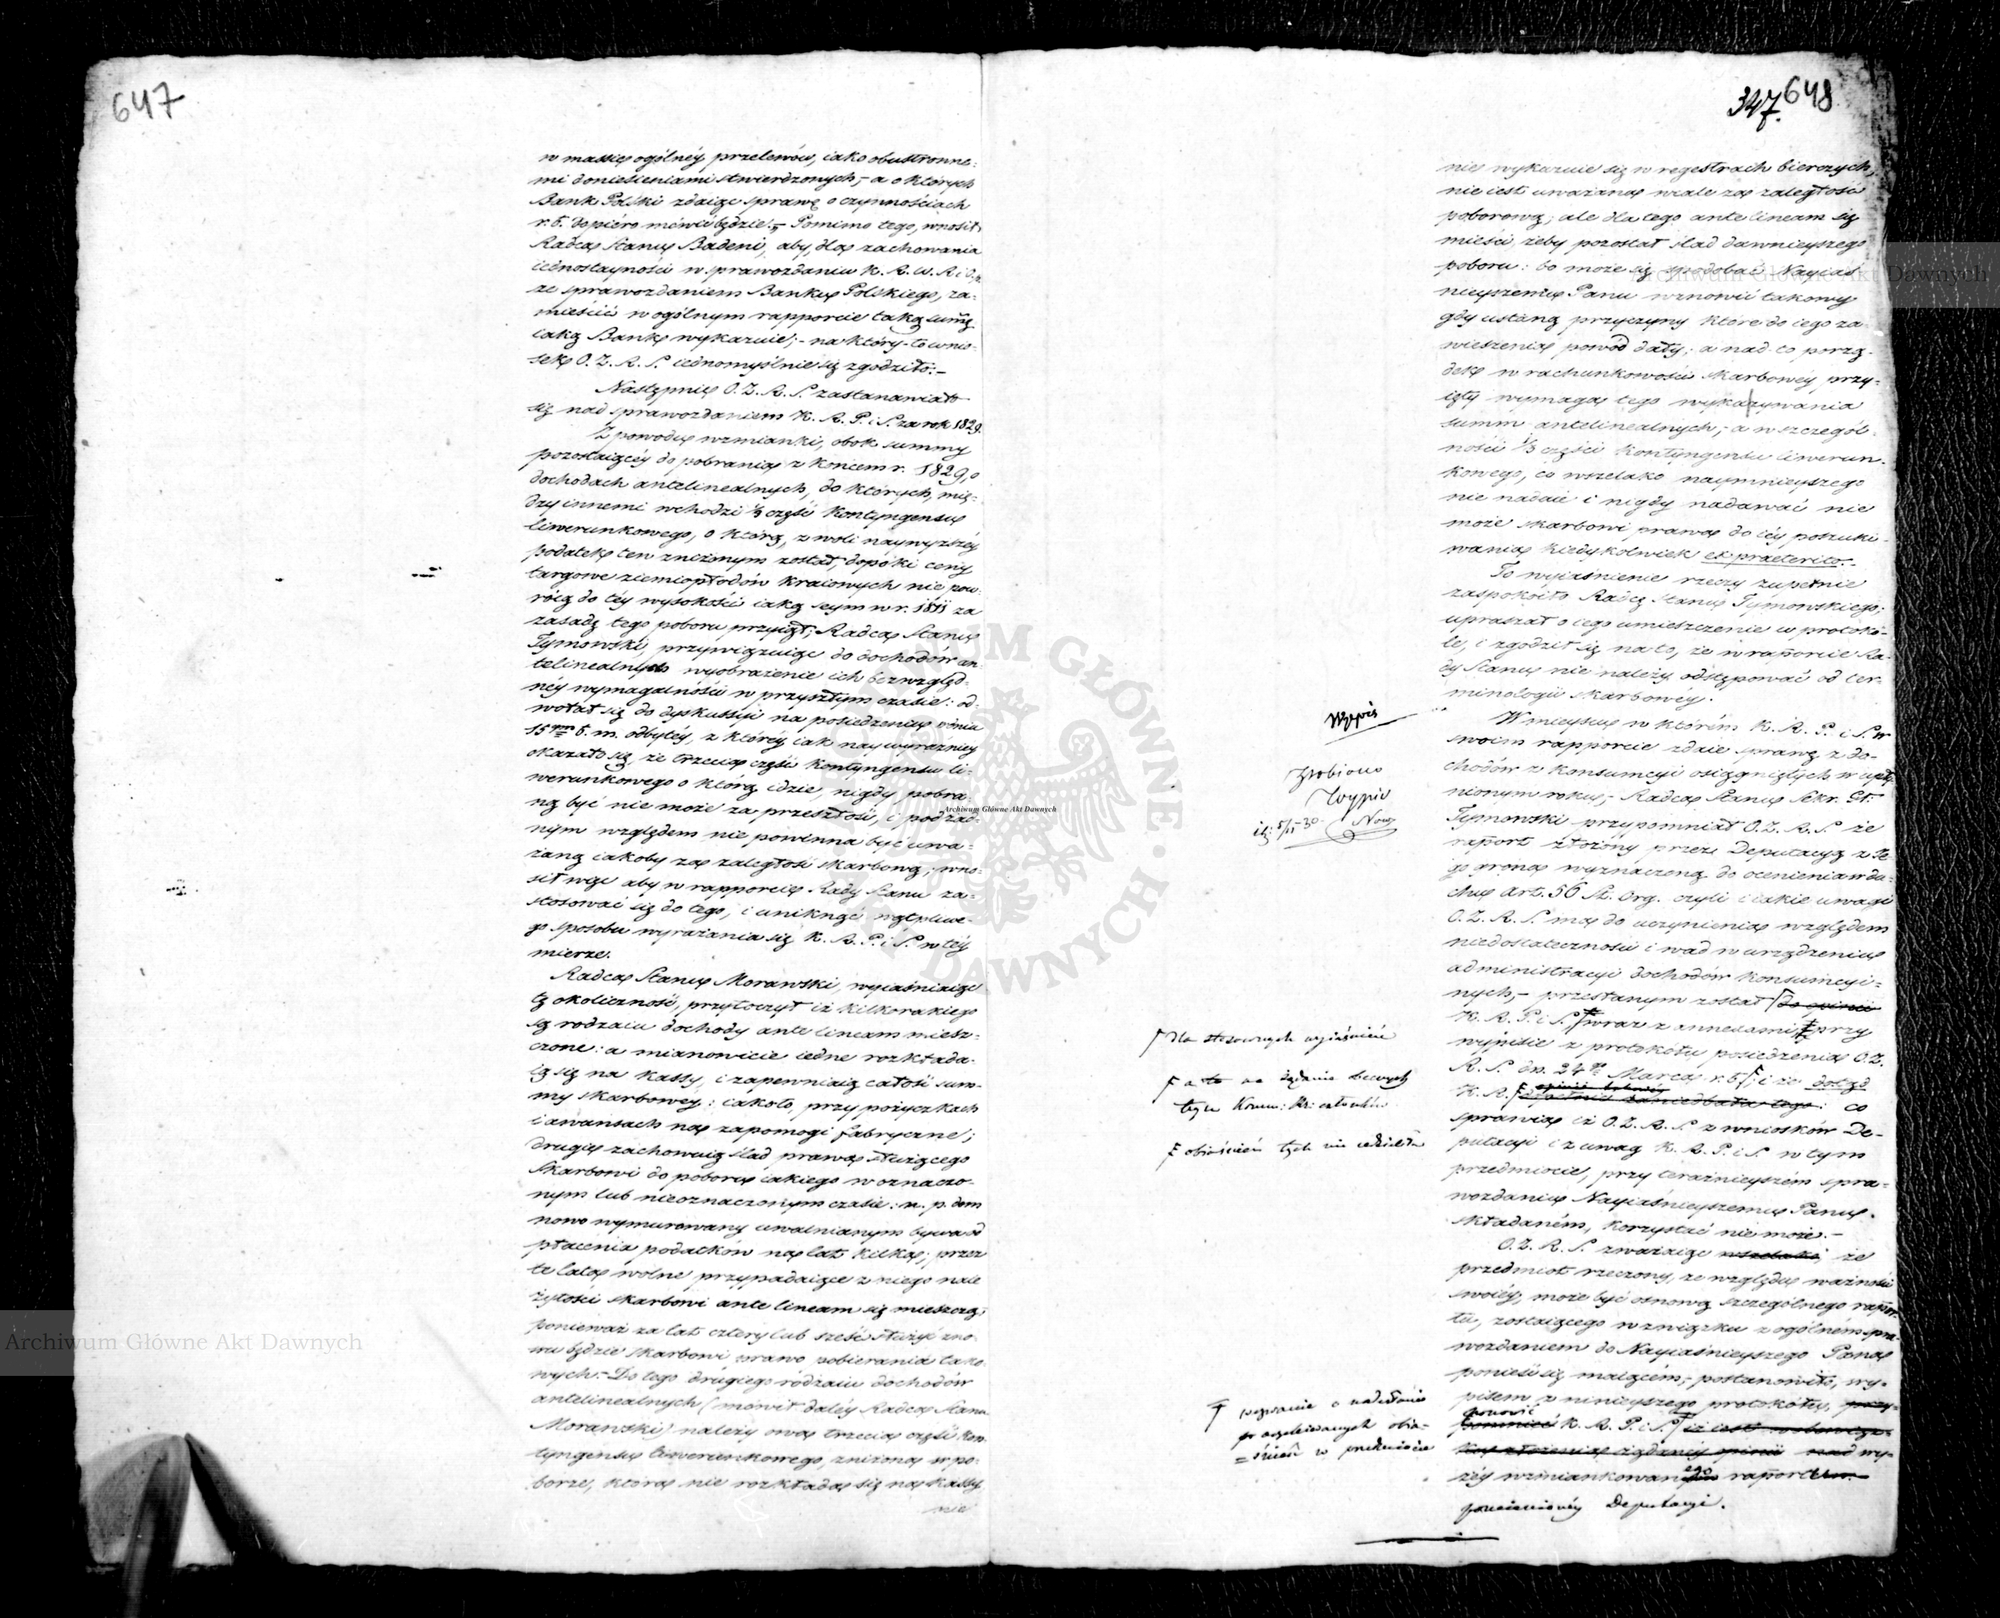 647
w massie ogólney przelewów, iako obustronne-
mi doniesieniami stwierdzonych; - a o których
Bank Polski zdaiąc sprawę o czynnościach
r. b. dopiéro mówić będzie; - Pomimo tego, wnosił
Radca Stanu Badeni, aby, dla zachowania
iednostayności w sprawozdaniu K. R. W. R. i O.
ze sprawozdaniem Banku Polskiego, za-
mieścić w ogólnym rapporcie taką summę
iaką Bank wykazuie; - na który-to wnio-
sek O. Z. R. S. iednomyślnie się zgodziło. -
Następnie O. Z. R. S. zastanawiało
się nad sprawozdaniem K. R. P. i S. za rok 1829.
Z powodu wzmianki, obok summy
pozostaiącéy do pobrania z końcem r. 1829, o
dochodach antelinealnych, do których, mię-
dzy innemi wchodzi ⅓ część Kontyngensu
liwerunkowego, o którą, z woli naywyższéy
podatek ten zniżonym został, dopóki ceny
targowe ziemiopłodów kraiowych nie pow-
rócą do téy wysokości iaką seym w r. 1811 za
zasadę tego poboru przyiął; Radca Stanu
Tymowski, przywięzuiąc do dochodów an-
telinealnych wyobrażenie ich bezwzględ-
néy wymagalności w przyszłym czasie: od-
wołał się do dyskussyi na posiedzeniu dnia
15 b. m. odbytéy, z któréy iak naywyraźniéy
okazało się, że trzecia część kontyngensu li-
werunkowego o którą idzie, nigdy pobra-
ną być nie może za przeszłość, i pod żad-
nym względem nie powinna być uwa-
żaną iakoby za zaległość skarbową; wno-
sił więc aby w rapporcie Rady Stanu za-
stosować się do tego, i uniknąć wątpliwe-
go sposobu wyrażania się K. R. P. i S. w téy
mierze.
Radca Stanu Morawski, wyiaśniaiąc
tę okoliczność, przytoczył iż kilkorakiego
są rodzaiu dochody ante lineam miesz-
czone: a mianowicie iedne rozkłada-
ią się na kassy, i zapewniaią całość sum-
my skarbowéy: iako to, przy pożyczkach
i awansach na zapomogi fabryczne;
drugie zachowuią ślad prawa służącego
Skarbowi do poboru iakiego w oznaczo-
nym lub nieoznaczonym czasie: n. p. dom
nowo wymurowany uwalnianym bywa od
płacenia podatków na lat kilka; przez
te lata wolne przypadaiące z niego nale
żytości skarbowi ante lineam się mieszczą;
ponieważ za lat cztery lub sześć służyć zno-
wu będzie skarbowi prawo pobierania tako-
wych. - Do tego drugiego rodzaiu dochodów
antelinealnych (mówił daléy Radca Stanu
Morawski) należy owa trzecia część Kon-
tyngensu liwerunkowego, zniżona w po-
borze, która nie rozkłada się na kassy,
nie
347. 648
nie wykazuie się w regestrach bierczych,
nie iest uważana wcale za zaległość
poborową; ale dla tego ante lineam się
mieści, żeby pozostał ślad dawnieyszego
poboru: bo może się spodobać Nayiaś-
nieyszemu Panu wznowić takowy
gdy ustaną przyczyny które do iego za-
wieszenia powód dały; a nad to porzą-
dek w rachunkowości skarbowéy przy-
ięty wymaga tego wykazywania
summ antelinealnych; - a w szczegól-
ności ⅓ części Kontyngensu liwerun-
kowego, co wszelako naymnieyszego
nie nadaie i nigdy nadawać nie
może skarbowi prawa do iéy poszuki-
wania kiedykolwiek ex praeterito. -
To wyiaśnienie rzeczy zupełnie
zaspokoiło Radcę Stanu Tymowskiego;
upraszał o iego umieszczenie w protokó-
le, i zgodził się na to, że w raporcie Ra-
dy Stanu nie należy odstępować od ter-
minologii skarbowéy.
Wypis
Zrobiono
Wypis
5/11 30. Now
W mieyscu w którém K. R. P. i S. w
swoim rapporcie zdaie sprawę z do-
chodów z konsumcyi osiągniętych w upły-
nionym roku; - Radca Stanu Sekr. Gł.
Tymowski przypomniał O. Z. R. S. że
raport złożony przez Deputacyą z te-
go grona wyznaczoną do ocenienia w du-
chu Art. 56 St. Org. czyli i iakie uwagi
O. Z. R. S. ma do uczynienia względem
niedostateczności i wad w urządzeniu
administracyi dochodów konsumcyi-
nych, - przesłanym został do opinii
K. R. P. i S. wraz z annexami przy
wypisie z protokółu posiedzenia O. Z.
R. S. dn. 24 Marca r. b. i że dotąd
K. R. opinii takowéy zaniedbała tego: co
sprawia iż O. Z. R. S. z wniosków De-
putacyi i z uwag K. R. P. i S. w tym
przedmiocie, przy teraźnieyszém spra-
wozdaniu Nayiaśnieyszemu Panu
składaném, korzystać nie może. -
dla stosownych wyiaśnień
a to na żądanie obecnych
tychże Komm: Rz: członków
obiaśnień tych nie udzieliła
O. Z. R. S. zważaiąc wszelako, że
przedmiot rzeczony, ze względu ważności
swoiéy, może być osnową szczególnego rapor-
tu, zostaiącego w związku z ogólném spra-
wozdaniem do Nayiaśnieyszego Pana
ponieść się maiącém, - postanowiło, wy-
pisem z ninieyszego protokółu, przy-
pomnieć ponowić K. R. P. i S. iż iest obowiąza-
na złożenia żądanéy opinii nad wy-
żéy wzmiankowanym raportem
pomienionéy Deputacyi.
wezwanie o nadesłanie
oczekiwanych obia-
śnień w przedmiocie
Archiwum Główne Akt Dawnych
Archiwum Główne Akt Dawnych
Archiwum Główne Akt Dawnych
ARCHIWUM GŁÓWNE AKT DAWNYCH